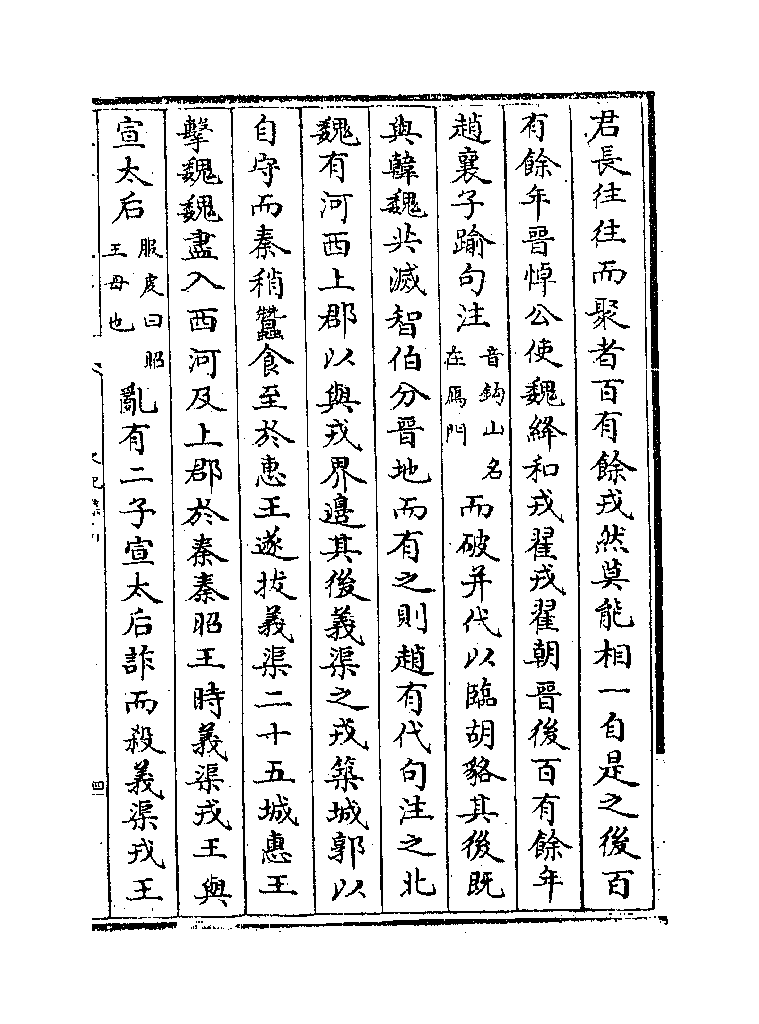 君長往往而聚者百有餘戎然莫能相一自是之後百
有餘年晉悼公使魏絳和戎翟戎翟朝晉後百有餘年
趙襄子踰句注音鈎山名在鴈門而破并代以臨胡貉其後既
與韓魏共滅智伯分晉地而有之則趙有代句注之北
魏有河西上郡以與戎界邊其後義渠之戎築城郭以
自守而秦稍蠶食至於惠王遂拔義渠二十五城惠王
擊魏魏盡入西河及上郡於秦秦昭王時義渠戎王與
宣太后服虔曰昭王母也亂有二子宣太后詐而殺義渠戎王
四